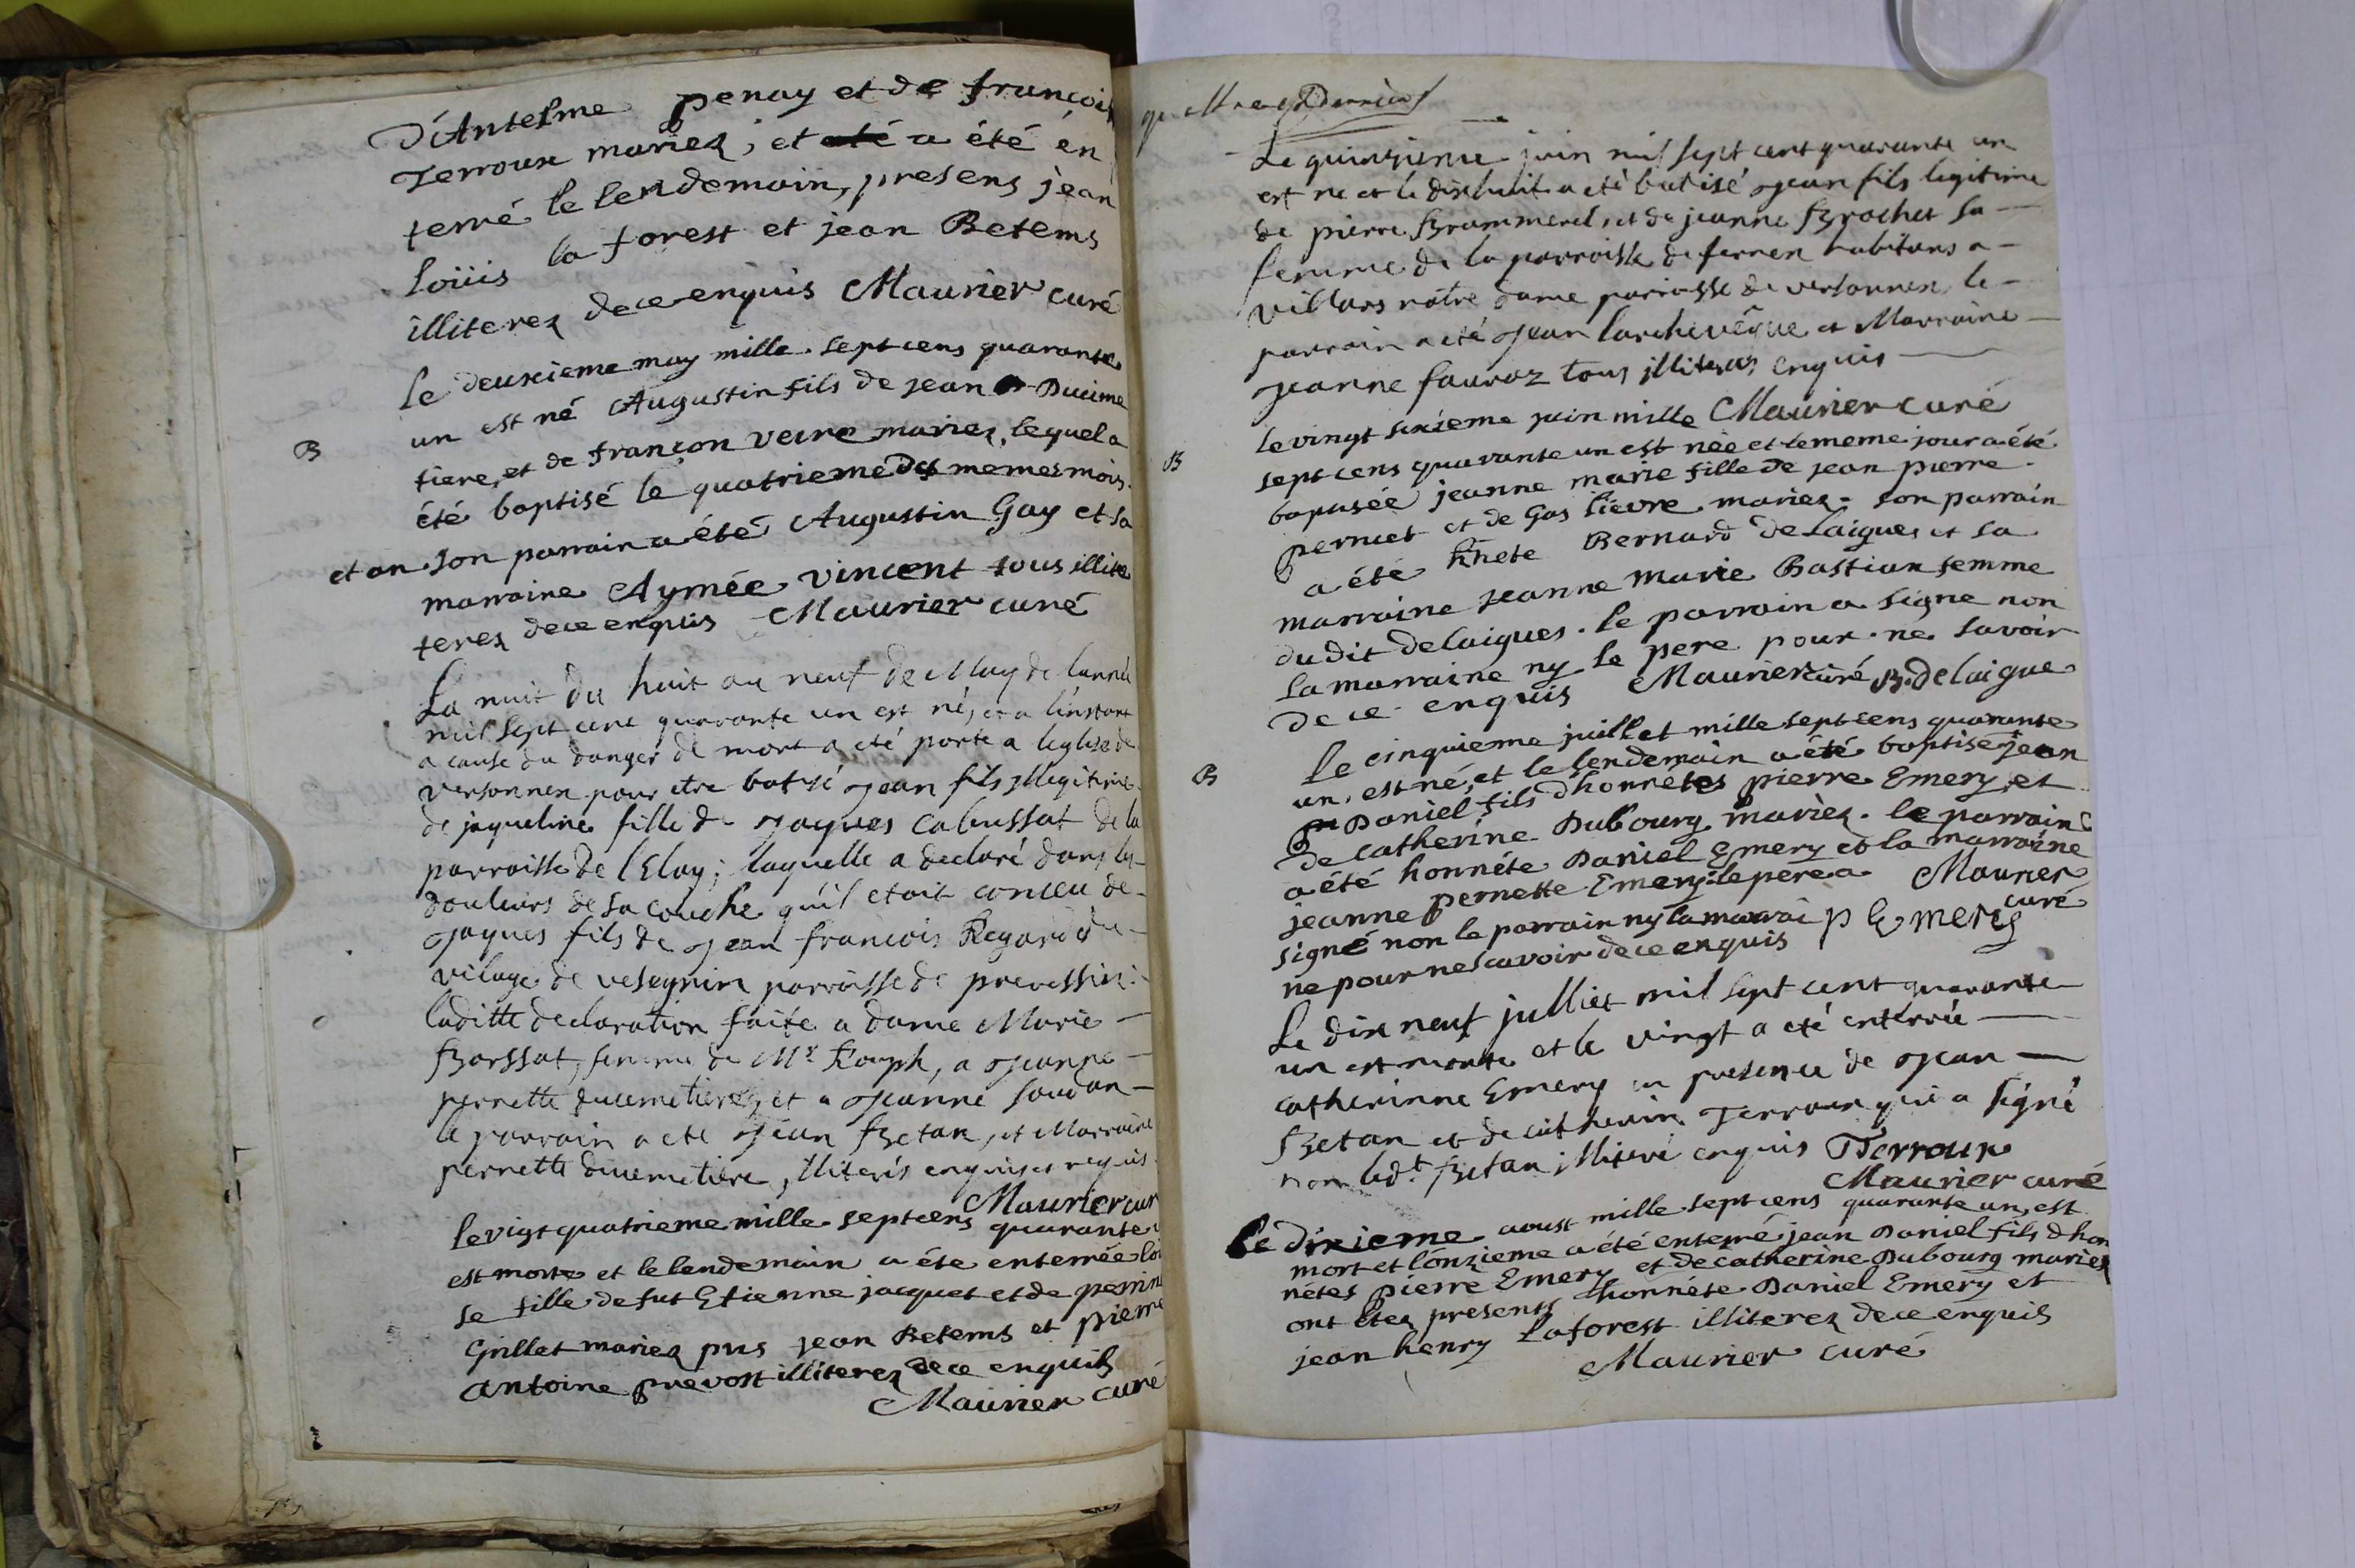 D'Antelme penay et de françois
Terroux mariez, et a été en
terré le lendemain, presens jean
loüis la forest et jean Betems
illiterez de ce enquis Maurier curé
le deuxieme may mille sept cens quarante
un est né Augustin fils de jean Ducime
B
tiere, et de françon veire mariez, lequel a
été baptisé le quatrieme des memes mois
et an son parrain a été Augustin Gay et sa
marraine Aymée vincent tous illite
rez de ce enquis Maurier curé
La nuit du huit au neuf de May de lannée
mil sept cent quarante un est né, et a linstant
a cause du danger de mort a eté porté a leglise de
versonnex pour etre batisé Jean fils illegitime
de jaqueline fille de Jaques cabussat de la
parroisse de lElay; laquelle a declaré dans les
douleurs de sa couche qu'il etoit conceu de
Jaques fils de Jean francois Regard du
vilage de vesegnin parroisse de prevessin:
laditte declaration faite a dame Marie
Borssat, femme de Mr Rouph, a Jeanne
pernette ducemetiere, et a Jeanne soudan
le parrain a eté Jean Betan, et Marraine
pernette ducemetiere, illiterés enquis et requis
Maurier cur
le vigt quatrieme mille sept cens quarante u
est morte et le lendemain a éte enterrée loi
se fille de fut Etienne jacquet et de perrine
Grillet mariez pns jean Betems et pierre
antoine prevost illiterez de ce enquis
Maurier curé
Le quinzieme juin mil sept cent quarante un
est né et le dixhuit a eté batisé Jean fils legitime
de pierre Brammerel, et de jeanne Brochet sa
femme de la parroisse de fernex habitans a
villars nôtre dame parroisse de versonnex le
parrain a eté Jean larchevêque et Marraine
Jeanne fauraz tous illiterés enquis
Maurier curé
le vingt sixieme juin mille
B
sept cens quarante un est née et le meme jour a été
baptisée jeanne marie fille de jean pierre
pernet et de Gas lievre mariez. son parrain
a été hnete Bernard Delaigues et sa
marraine jeanne marie Bastian femme
du dit delaigues. le parrain a signe non
la marraine ny le pere pour ne savoir
de ce enquis Maurier curé B. delaigue
le cinquieme juillet mille sept cens quarante
B
un, est né, et le lendemain a été baptisé jean
Daniel fils d'honnêtes pierre Emery, et
de catherine Dubourg mariez. le parrain
a été honnéte Daniel Emery et la marraine
jeanne pernette Emery le pere a Maurier
curé
signé non le parrain ny la marrai p Emery
ne pour ne scavoir de ce enquis
Le dix neuf julliet mil sept cent quarante
un est morte et le vingt a eté enterrée
catherinne Emery en presence de Jean
Betan et de catherin Terroux qui a signé
non led.t Betan illiteré enquis Terroux
Maurier curé
le dixieme aoust mille sept cens quarante un, est
mort et l'onzieme a été enterré jean Daniel fils d'hon
nétes pierre Emery et de catherine Dubourg mariez
ont etez presents honnéte Daniel Emery et
jean henry Laforest illiterez de ce enquis
Maurier curé